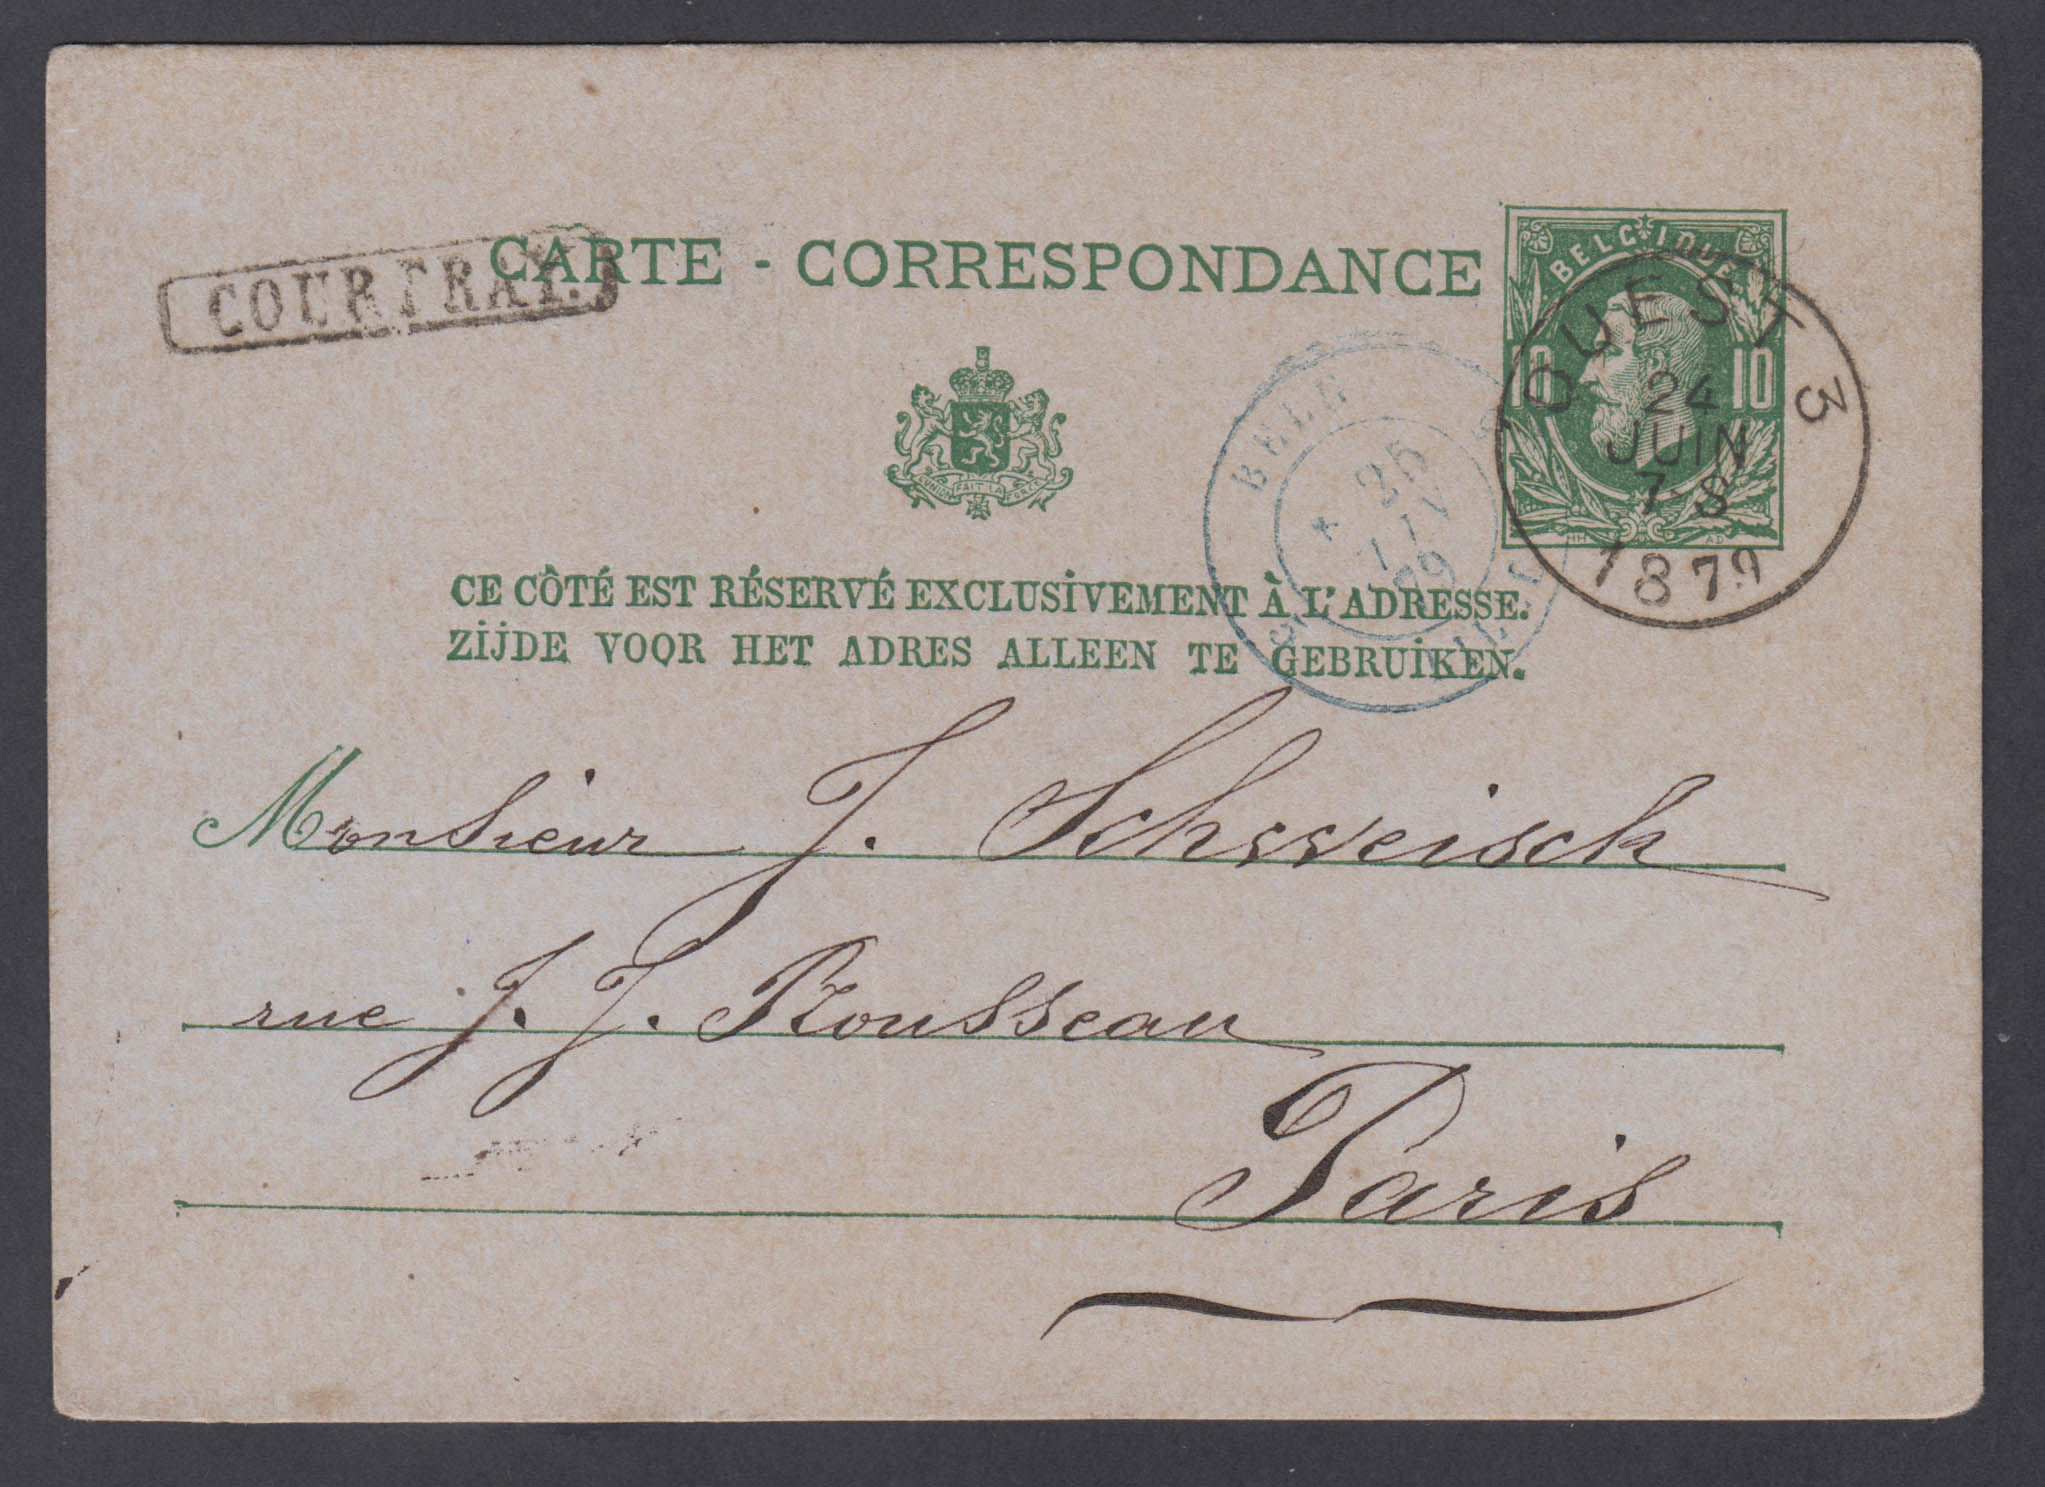 COURTRAY.
CARTE - CORRESPONDANCE
BELGIQUE
10 10
OUEST 3
24
JUIN
7-8
1879
BELG
25
79
L'UNION FAIT LA FORCE
HH AD
CE CÔTÉ EST RÉSERVÉ EXCLUSIVEMENT À L'ADRESSE.
ZIJDE VOOR HET ADRES ALLEEN TE GEBRUIKEN.
Monsieur J. Schweisch
rue J. J. Rousseau
Paris